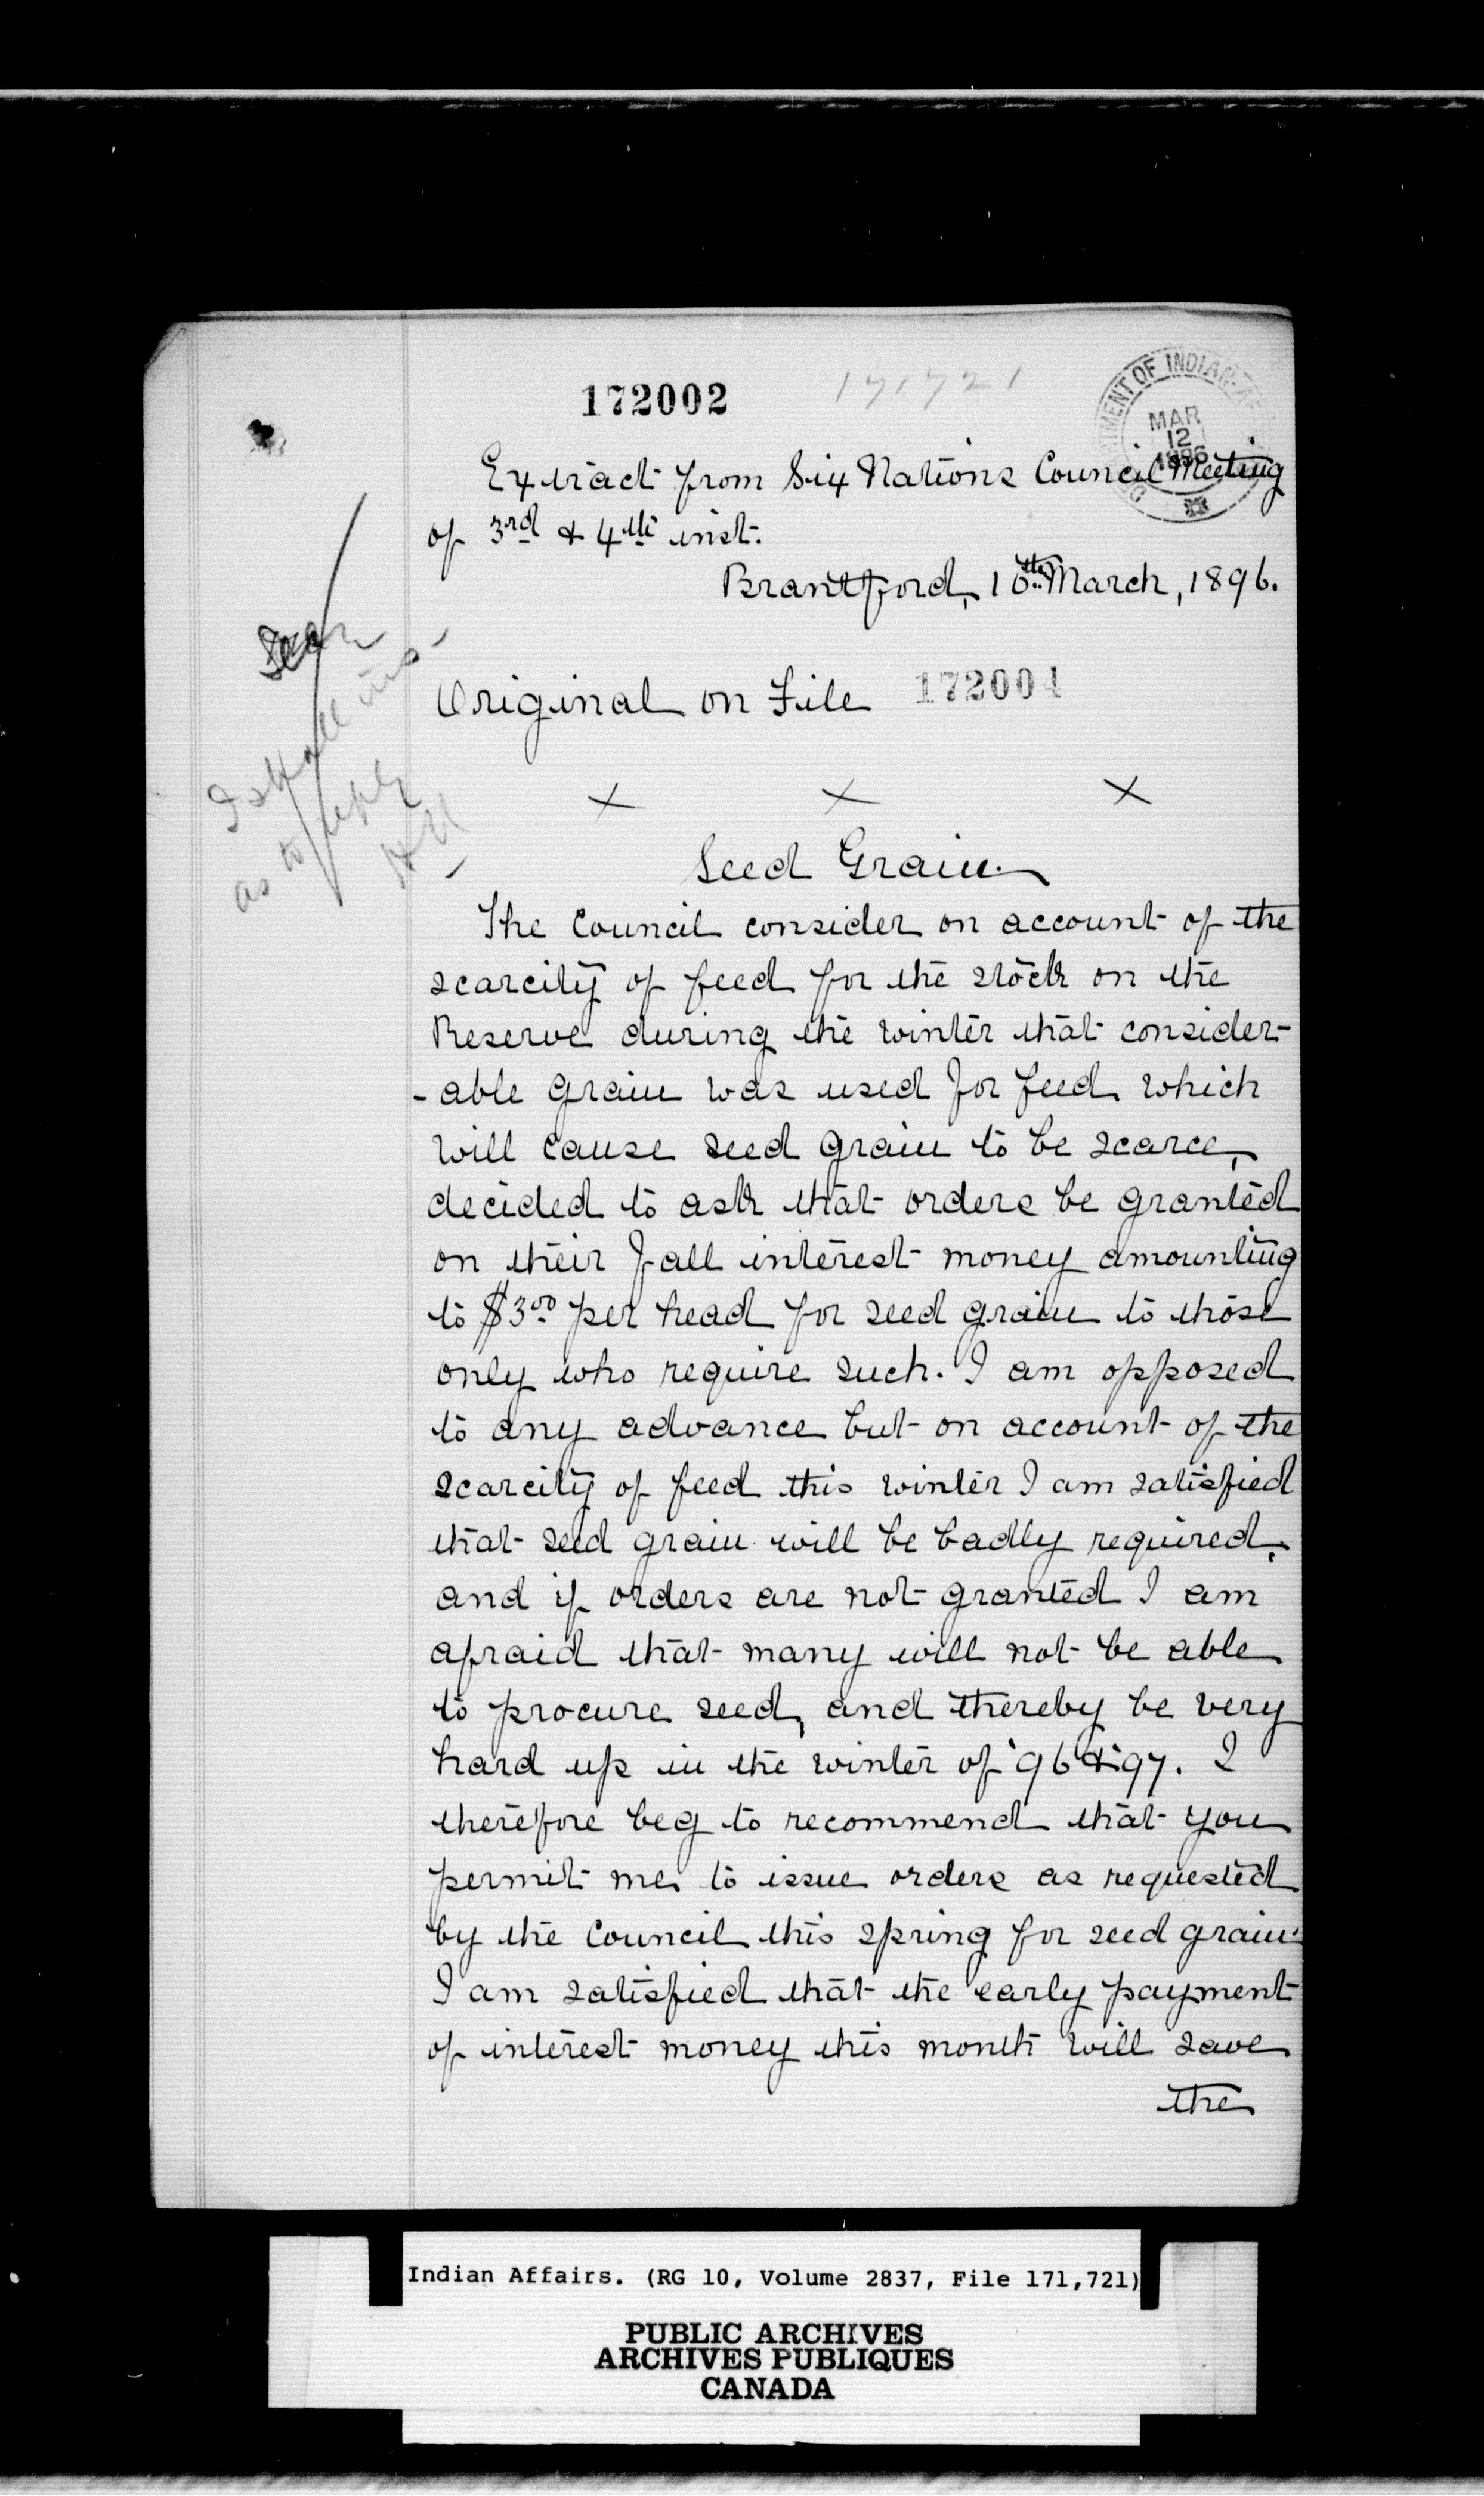 172002
171721
DEPARTMENT OF INDIAN AFFAIRS
MAR
12
1896
Extract from Six Nations Council Meeting
of 3rd & 4th inst.
Brantford, 10th March, 1896.
Original on File 172004
x x x
Seed Grain.
The Council consider on account of the
scarcity of feed for the stock on the
Reserve during the winter that consider-
-able grain was used for feed which
will cause seed grain to be scarce,
decided to ask that orders be granted
on their fall interest money amounting
to $3.00 per head for seed grain to those
only who require such. I am opposed
to any advance but on account of the
scarcity of feed this winter I am satisfied
that seed grain will be badly required,
and if orders are not granted I am
afraid that many will not be able
to procure seed, and thereby be very
hard up in the winter of '96 & '97. I
therefore beg to recommend that you
permit me to issue orders as requested
by the Council this spring for seed grain.
I am satisfied that the early payment
of interest money this month will save
the
I shall
as to reply
Indian Affairs. (RG 10, Volume 2837, File 171,721)
PUBLIC ARCHIVES
ARCHIVES PUBLIQUES
CANADA